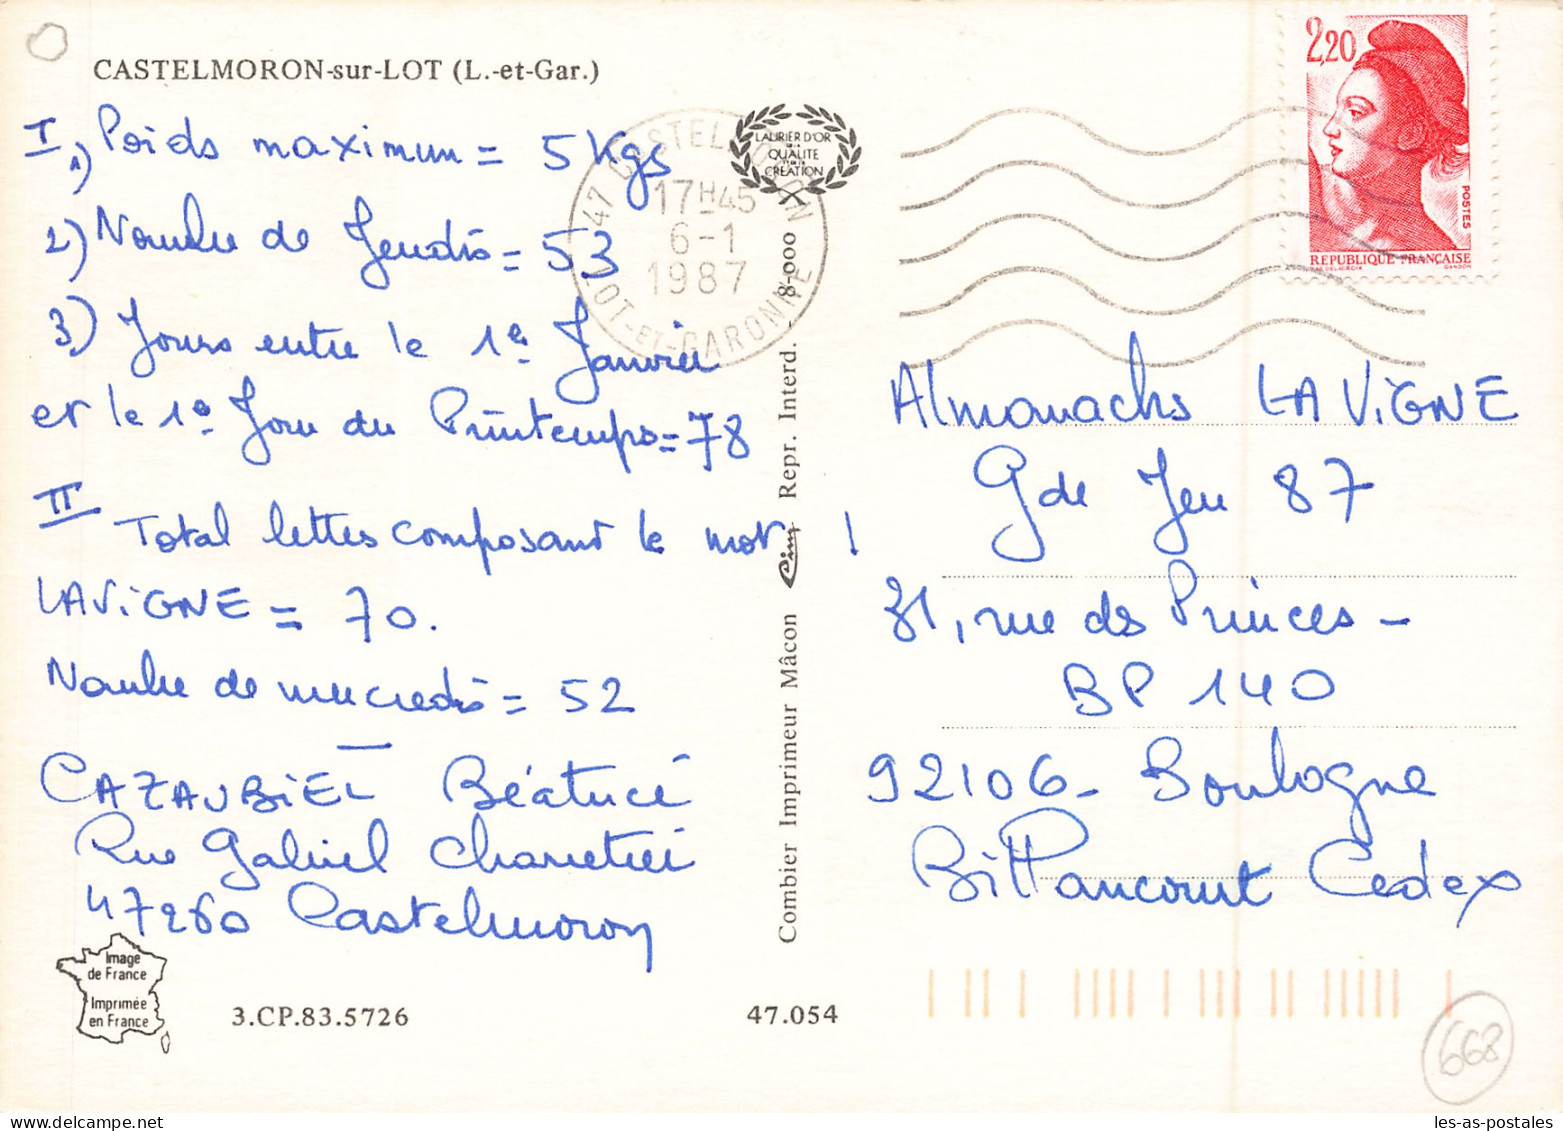 CASTELMORON-sur-LOT (L.-et-Gar.)
I 1) Poids maximum = 5 Kgs
2) Nombre de Jeudis = 53
3) Jours entre le 1e Janvier
et le 1e Jour du Printemps = 78
II Total lettres composant le mot
LAViGNE = 70.
Nombre de mercredis = 52
CAZAUBiEL Béatrice
Rue Gabriel Charretier
47260 Castelmoron
Image
de France
Imprimée
en France
3.CP.83.5726
47.054
Combier Imprimeur Mâcon Cim Repr. Interd. 8-000
LAURIER D'OR
DE LA
QUALITE
ET DE LA
CREATION
47 CASTELMORON
17H45
6-1
1987
LOT-ET-GARONNE
2,20
POSTES
REPUBLIQUE FRANÇAISE
D'AP. DELACROIX GANDON
Almanachs LAViGNE
Gde Jeu 87
31, rue des Princes -
BP 140
92106 - Boulogne
Billancourt Cedex
668
les-as-postales